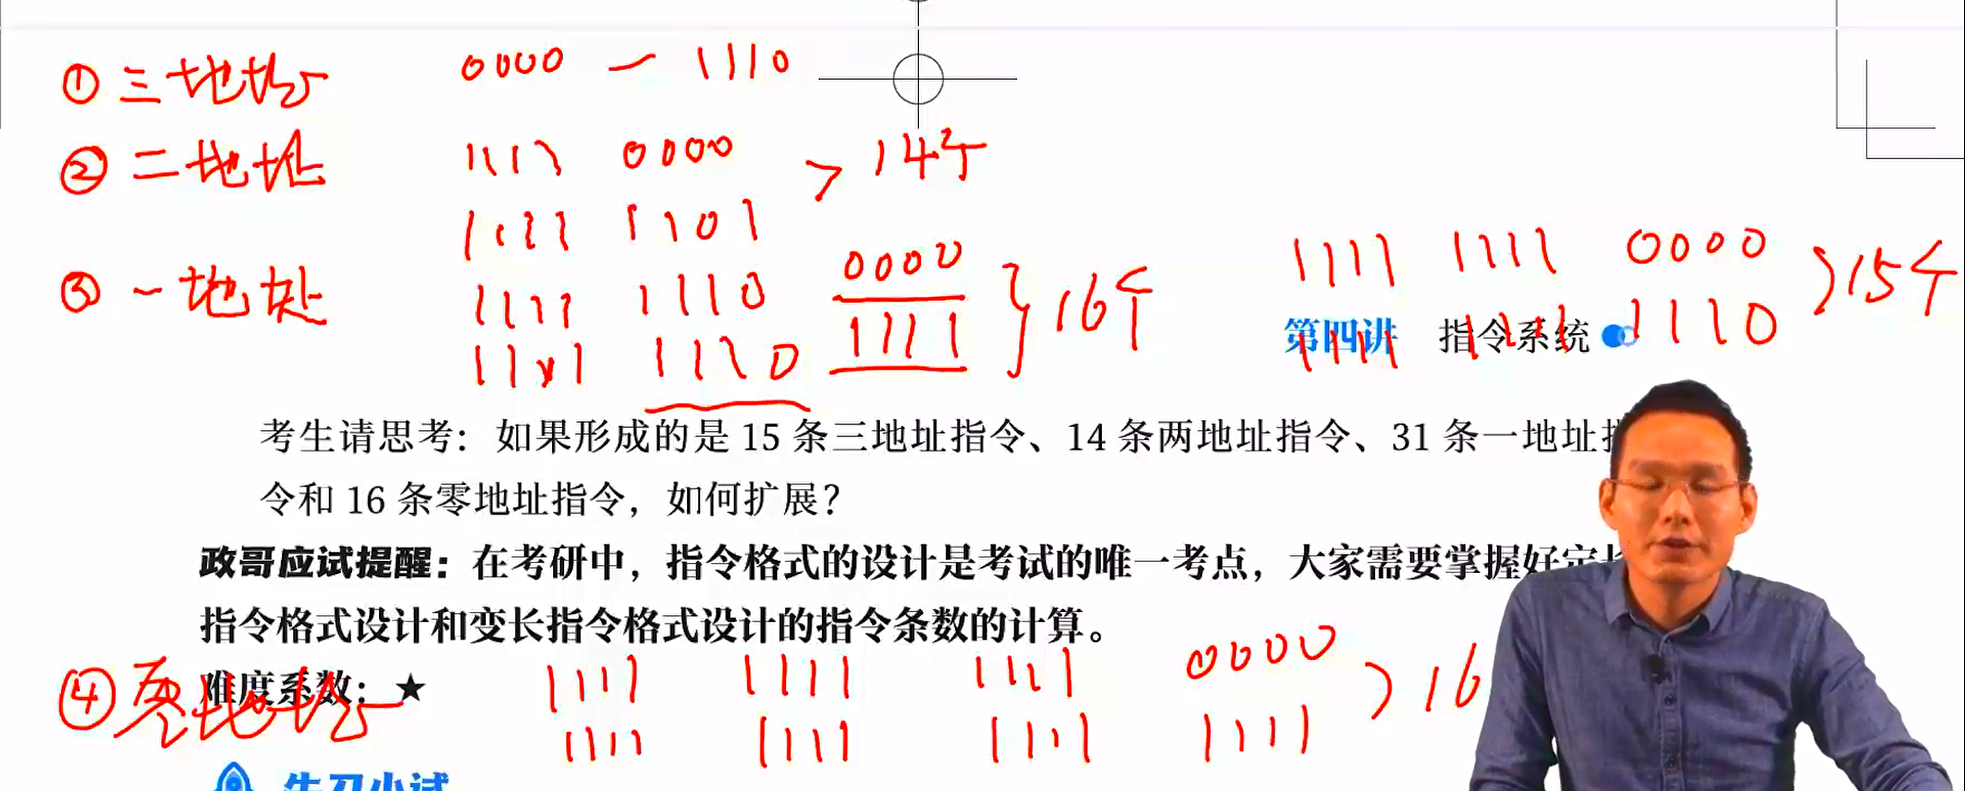 ①三地址 0000 — 1110
②二地址 1111 0000 > 14个
1111 1101
③一地址 1111 1110 0000 } 16个 1111 1111 0000 } 15个
1111 1110 1111 1111 1111 1110
第四讲 指令系统
考生请思考：如果形成的是 15 条三地址指令、14 条两地址指令、31 条一地址指
令和 16 条零地址指令，如何扩展？
政哥应试提醒：在考研中，指令格式的设计是考试的唯一考点，大家需要掌握好定长
指令格式设计和变长指令格式设计的指令条数的计算。
难度系数：★
④零地址 1111 1111 1111 0000 > 16
1111 1111 1111 1111
牛刀小试